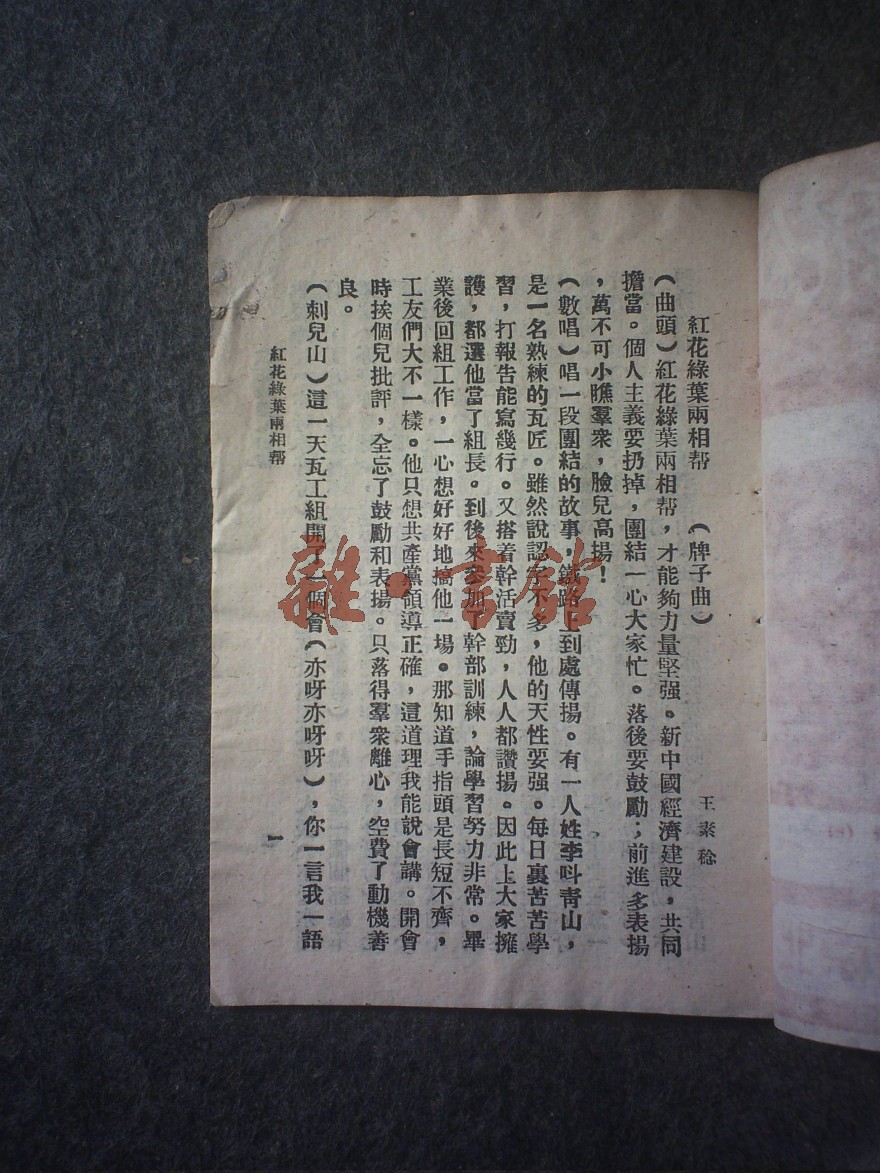 紅花綠葉兩相帮　（牌子曲）
王素稔
（曲頭）紅花綠葉兩相帮，才能夠力量堅强。新中國經濟建設，共同
擔當。個人主義要扔掉，團結一心大家忙。落後要鼓勵；前進多表揚
，萬不可小瞧羣衆，臉兒高揚！
（數唱）唱一段團結的故事，鐵路上到處傳揚。有一人姓李呌靑山，
是一名熟練的瓦匠。雖然說認字不多，他的天性要强。每日裏苦苦學
習，打報告能寫幾行。又搭着幹活賣勁，人人都讚揚。因此上大家擁
護，都選他當了組長。到後來參加了幹部訓練，論學習努力非常。畢
業後回組工作，一心想好好地搞他一場。那知道手指頭是長短不齊，
工友們大不一樣。他只想共產黨領導正確，這道理我能說會講。開會
時挨個兒批評，全忘了鼓勵和表揚。只落得羣衆離心，空費了動機善
良。
（刺兒山）這一天瓦工組開了一個會（亦呀亦呀呀），你一言我一語
紅花綠葉兩相帮
一
雜·书館